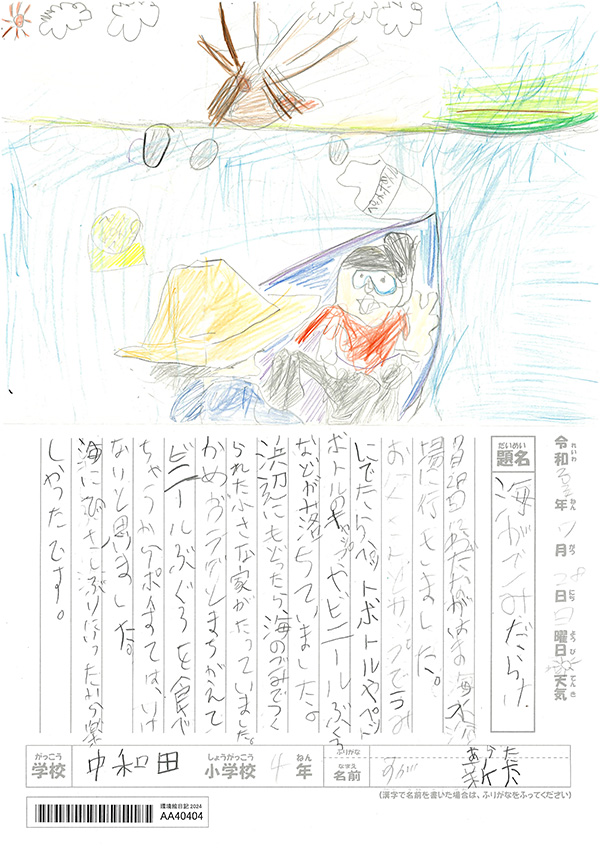 令和 年 7月 28日 日曜日 天気
れいわ ねん がつ にち ようび てんき
だいめい
題名 海がごみだらけ
7月28日に
場に行きました。
サップでうみ
にでたらペットボトルやペッ
ボトルのキャップや、ビニールぶくろ
などが落ちていました。
浜辺にもどったら、海のごみでつく
られた小さな家がたっていました。
かめがクラゲとまちがえて
ビニールぶくろを食べ
ちゃうからポイすては、いけ
ないと思いました。
海にひさしぶりにいったから楽
しかったです。
がっこう しょうがっこう ねん ふりがな あらた
学校 中和田 小学校 4年 なまえ 名前 すが 新太
(漢字で名前を書いた場合は、ふりがなをふってください)
環境絵日記 2024
AA40404